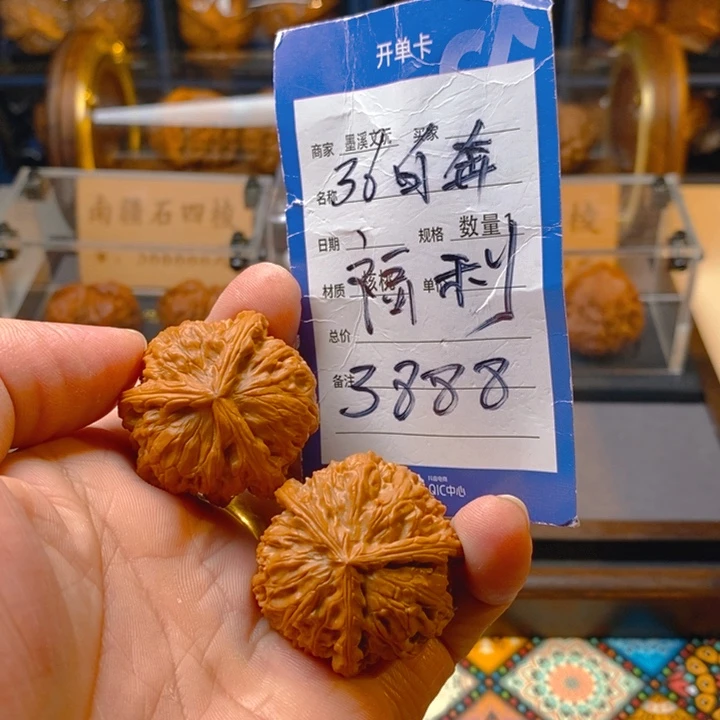 开单卡
商家 墨溪文玩 买家
名称 36时奔
日期 规格 数量1
材质 核桃 单
福利
总价
备注 3888
抖音电商
QIC中心
南疆石四楼